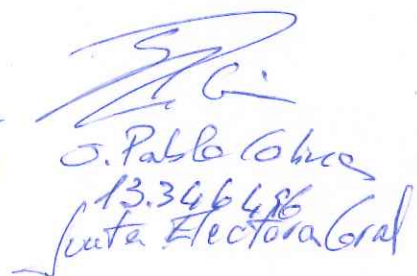 J. Pablo Colinas
13.346.496
Junta Electoral Gral